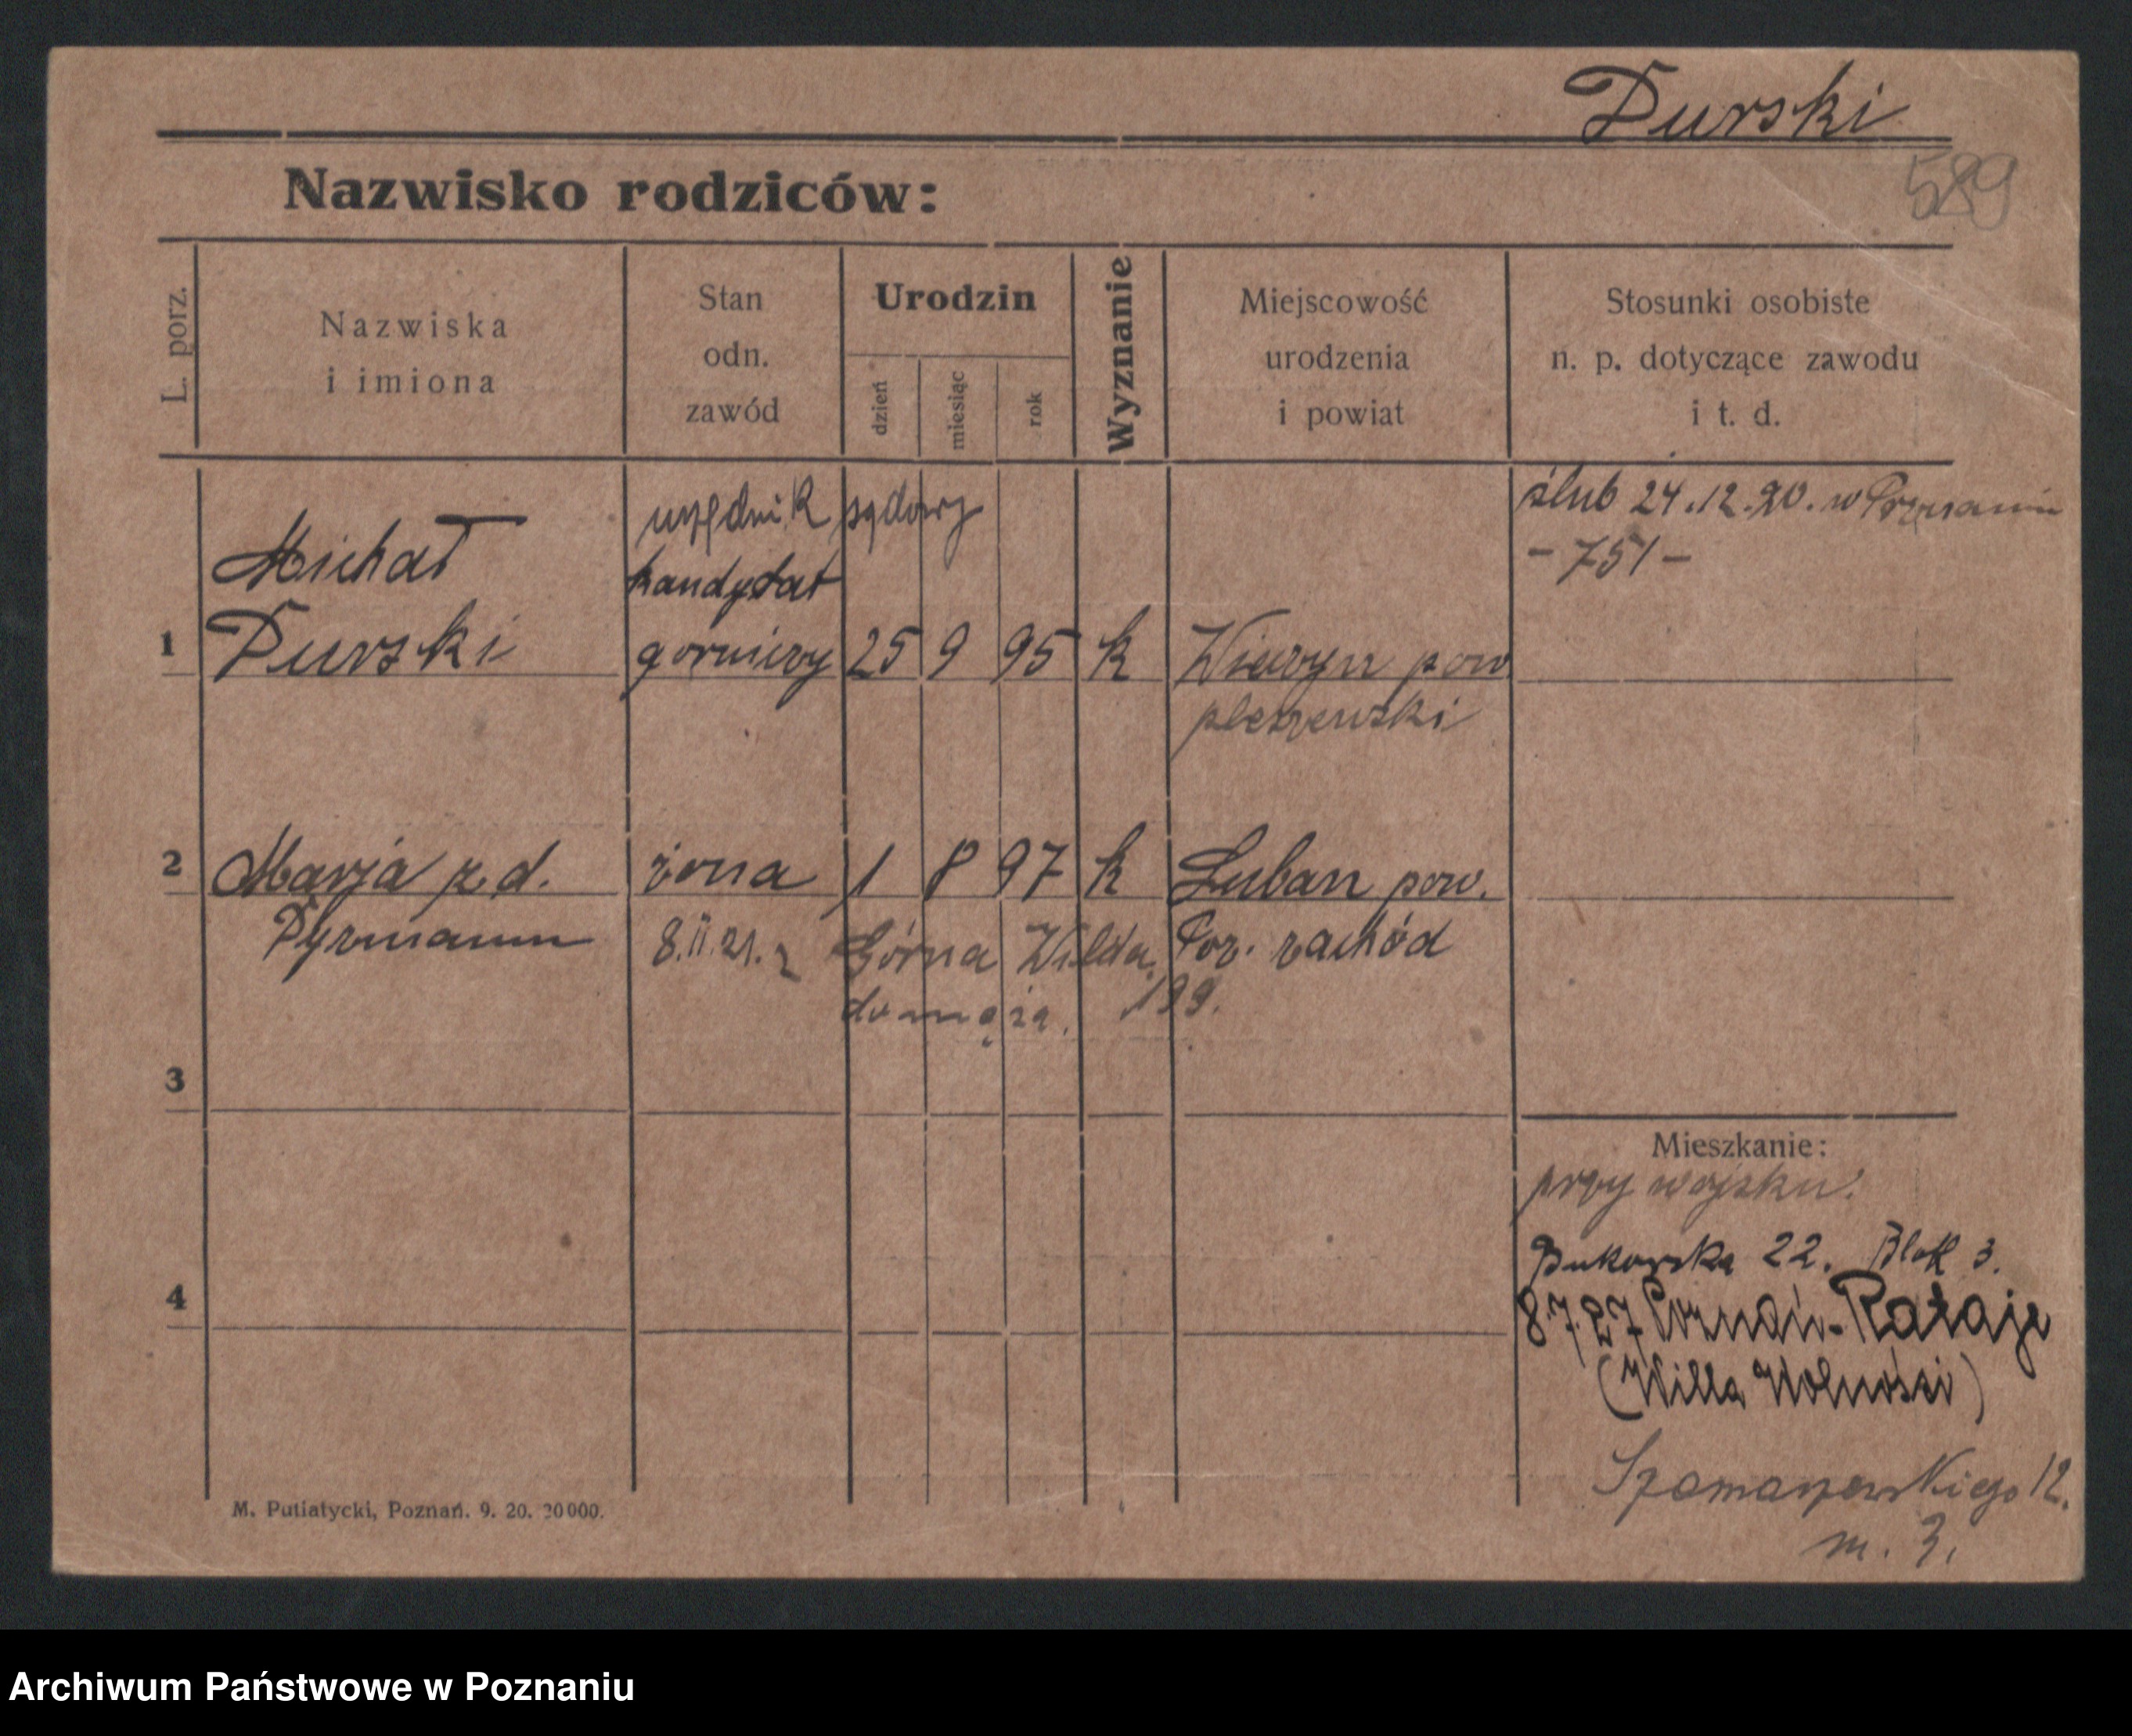 Durski
589
Nazwisko rodziców:
L. porz.
Nazwiska
i imiona
Stan
odn.
zawód
Urodzin
dzień
miesiąc
rok
Wyznanie
Miejscowość
urodzenia
i powiat
Stosunki osobiste
n. p. dotyczące zawodu
i t. d.
urzędnik sądowy
ślub 24.12.20. w Poznaniu
- 751 -
Michał
kandydat
1 Durski górniczy 25 9 95 k Wieczyn pow
pleszewski
2 Marja z d. żona 1 8 97 k Luban pow.
8.II.21. z Górna Wilda Poz. zachód
do męża. 199.
3
Mieszkanie:
przy wojsku.
Bukowska 22. Blok 3.
4
8.7.27 Poznań-Rataje
(Willa Wolności)
12.
m. 3.
M. Putiatycki, Poznań. 9. 20. 20000.
Archiwum Państwowe w Poznaniu